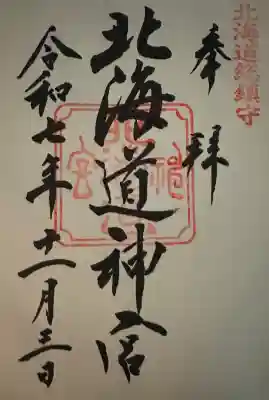 北海道総鎮守
奉拝
北海道神宮
令和七年十一月三日